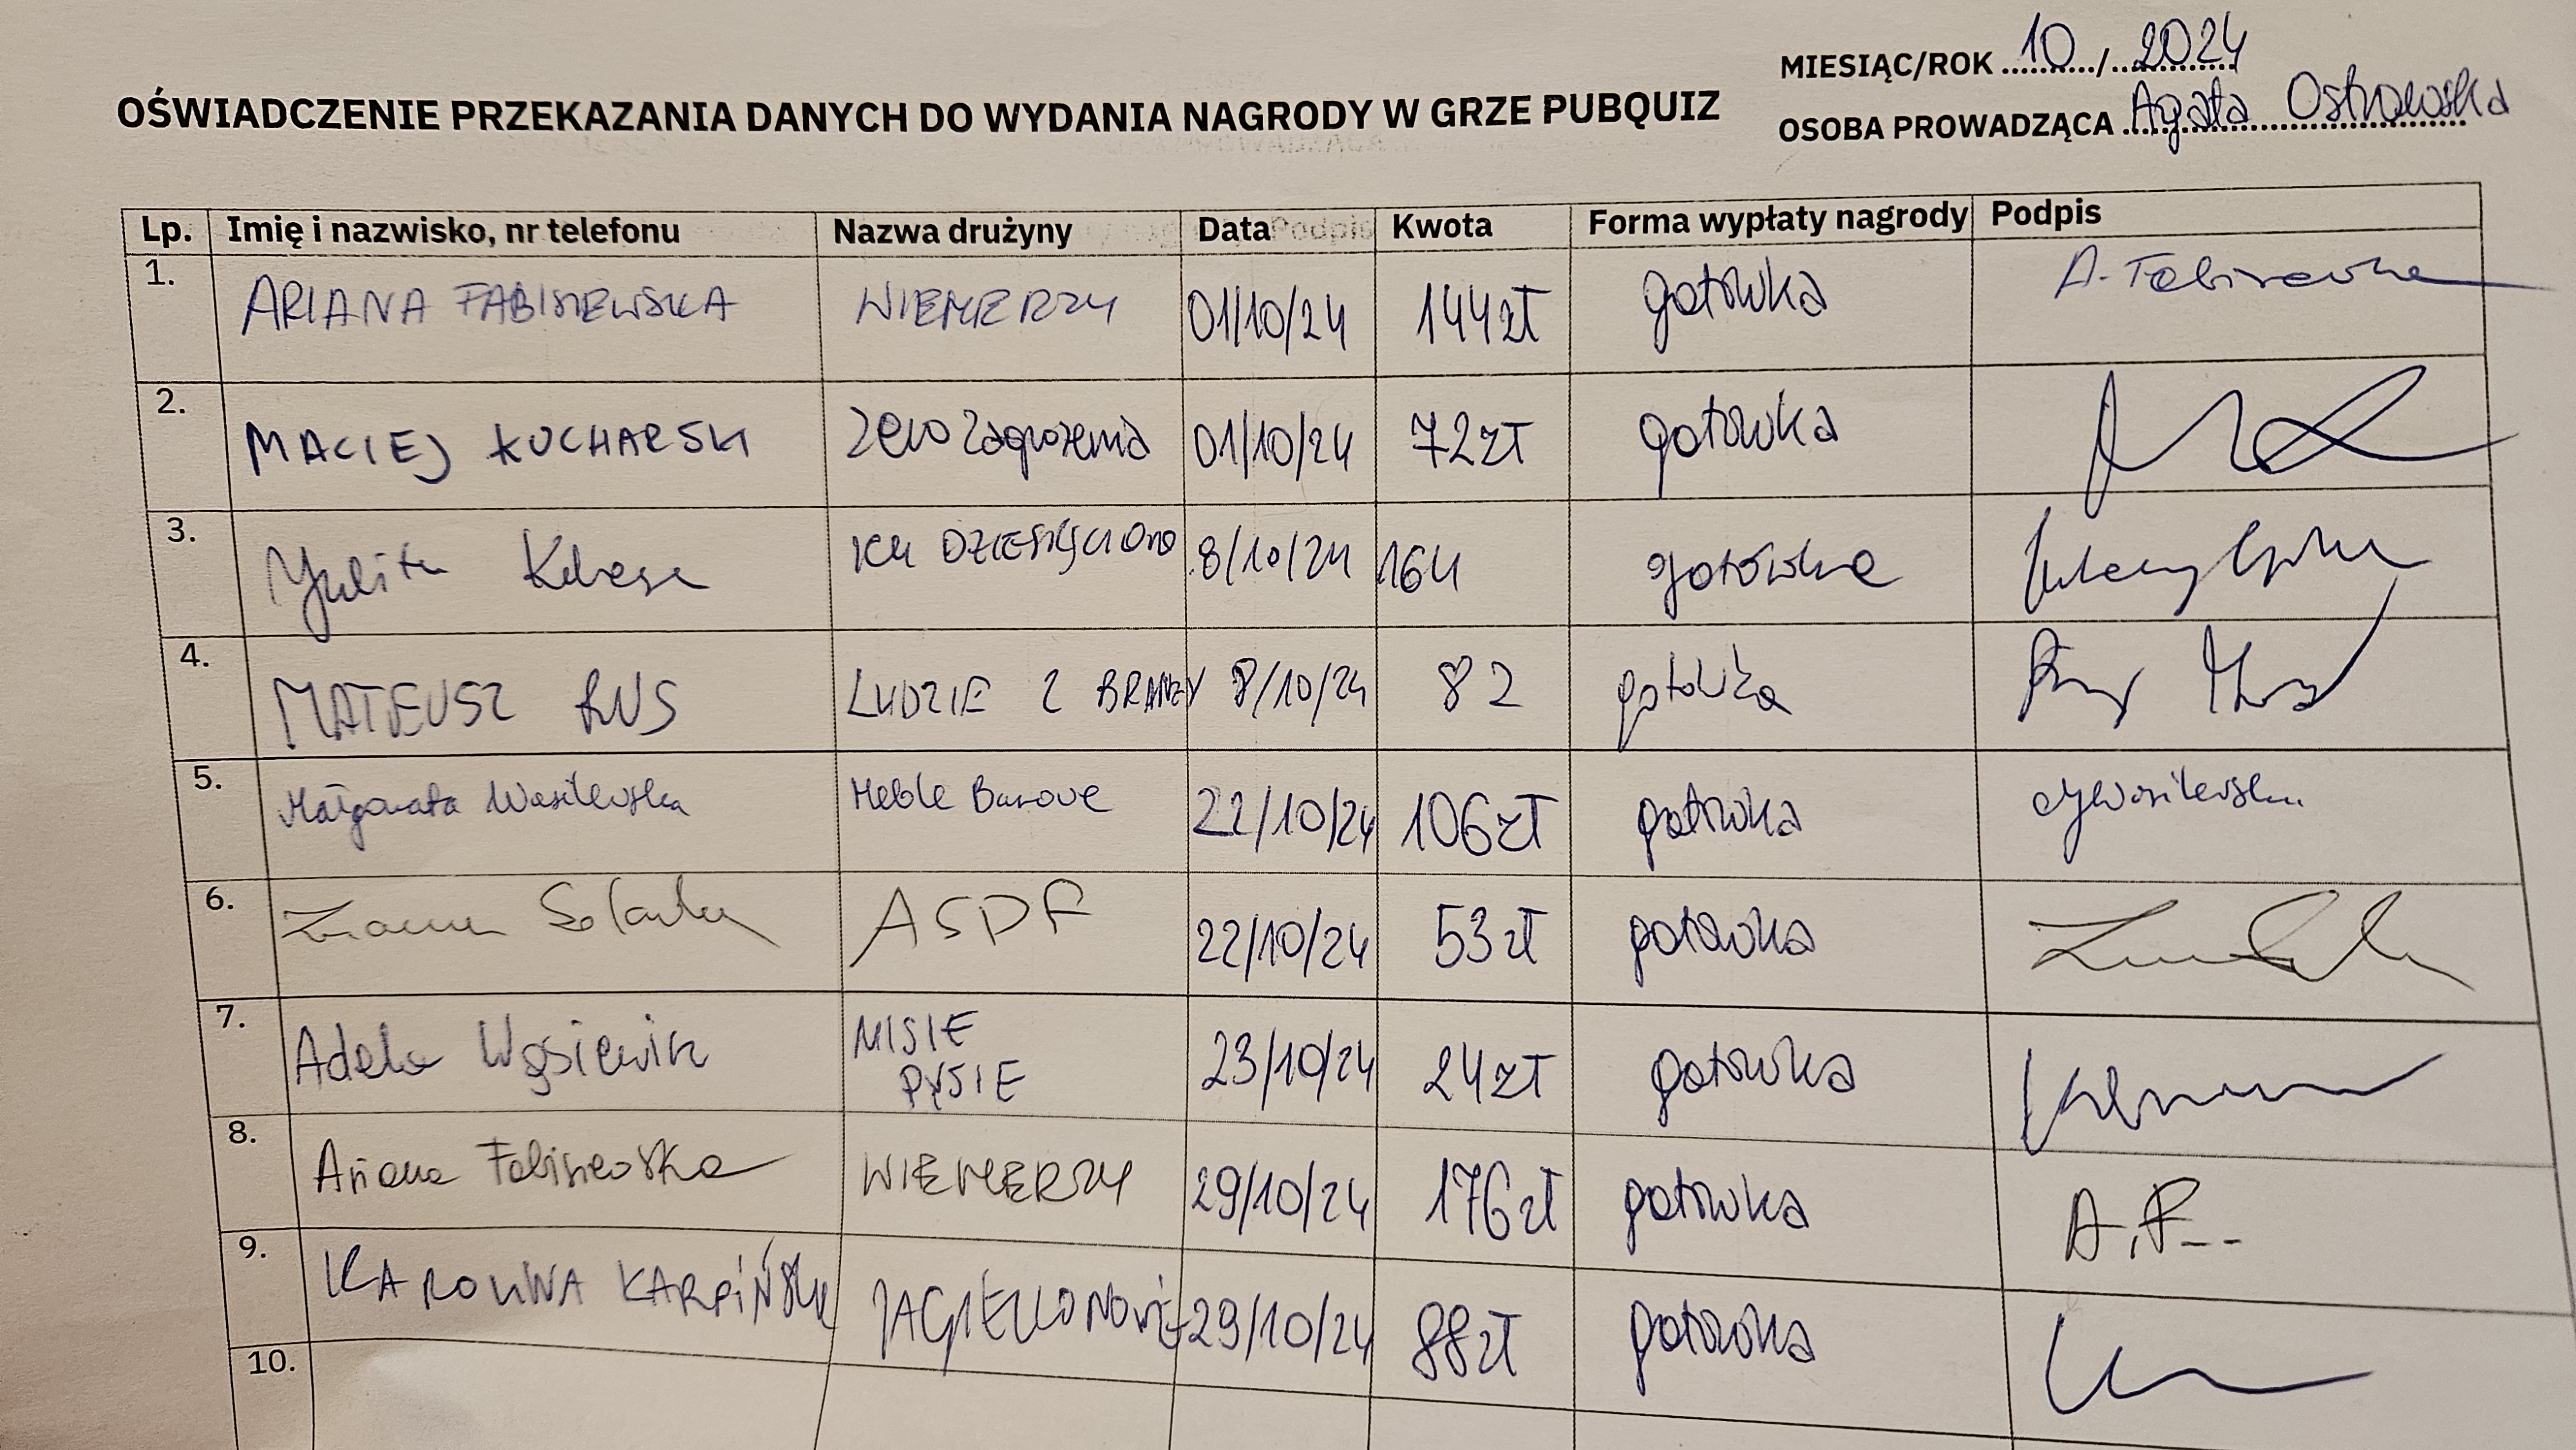 MIESIĄC/ROK 10 / 2024
OŚWIADCZENIE PRZEKAZANIA DANYCH DO WYDANIA NAGRODY W GRZE PUBQUIZ
OSOBA PROWADZĄCA Agata Ostrowska
Lp. Imię i nazwisko, nr telefonu Nazwa drużyny Data Kwota Forma wypłaty nagrody Podpis
1. ARIANA FABISIEWSKA WIEMERZY 01/10/24 144zł gotówka
2. MACIEJ KUCHARSKI Zero Zagrożenia 01/10/24 72zł gotówka
3. ICH DZIESIĘCIORO 8/10/24 164 gotówka
4. MATEUSZ KUS LUDZIE Z BRANŻY 8/10/24 82 gotówka
5. Małgorzata Wasilewska Meble Barowe 22/10/24 106zł gotówka
6. ASDF 22/10/24 53zł gotówka
7. Adela MISIE 23/10/24 24zł gotówka
PYSIE
8. Ariana Fabisiewska WIEMERZY 29/10/24 176zł gotówka A.F.
9. KAROLINA KARPIŃSKA JAGIELLONOWIE 29/10/24 88zł gotówka
10.